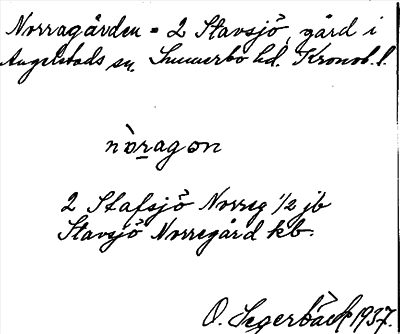 Norragården = 2 Stavsjö, gård i
Angelstads sn. Sunnerbo hd. Kronob. l.
nòragon
2 Stafsjö Norreg 1/2 jb
Stavsjö Norregård kb.
O. Segerbäck 1937.